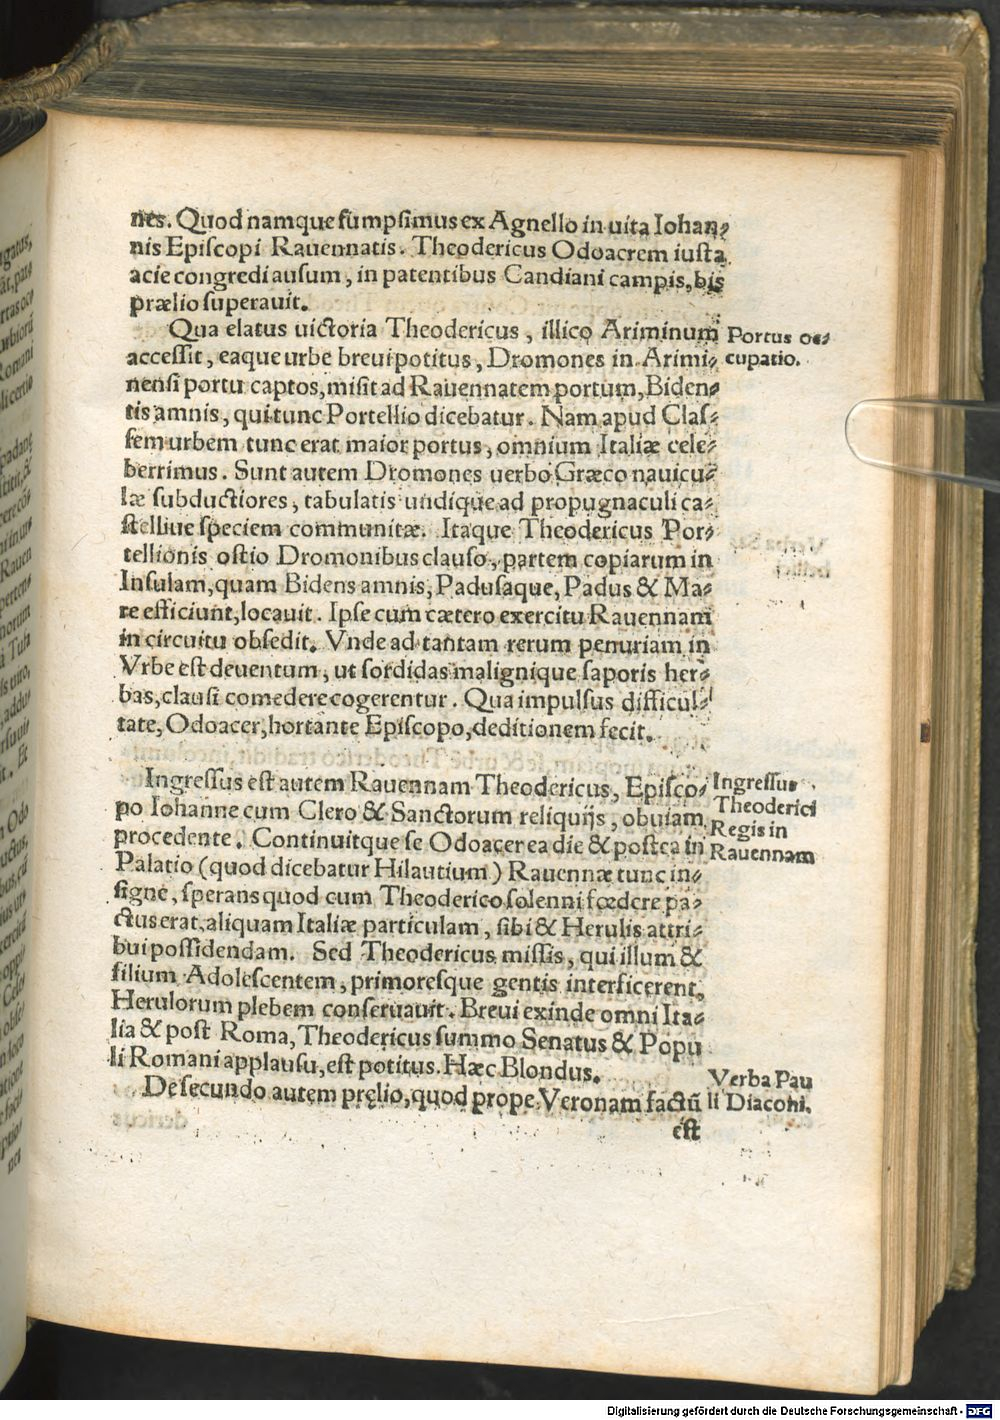 nes. Quod namque sumpsimus ex Agnello in uita Iohan-
nis Episcopi Rauennatis. Theodericus Odoacrem iusta
acie congredi ausum, in patentibus Candiani campis, bis
prælio superauit.
Qua elatus uictoria Theodericus, illico Ariminum
accessit, eaque urbe breui potitus, Dromones in Arimi-
nensi portu captos, misit ad Rauennatem portum, Biden-
tis amnis, qui tunc Portellio dicebatur. Nam apud Clas-
sem urbem tunc erat maior portus, omnium Italiæ cele-
berrimus. Sunt autem Dromones uerbo Græco nauicu-
læ subductiores, tabulatis undique ad propugnaculi ca-
stelliue speciem communitæ. Itaque Theodericus Por-
tellionis ostio Dromonibus clauso, partem copiarum in
Insulam, quam Bidens amnis, Padusaque, Padus & Ma-
re efficiunt, locauit. Ipse cum cætero exercitu Rauennam
in circuitu obsedit. Vnde ad tantam rerum penuriam in
Vrbe est deuentum, ut sordidas malignique saporis her-
bas, clausi comedere cogerentur. Qua impulsus difficul-
tate, Odoacer, hortante Episcopo, deditionem fecit.
Ingressus est autem Rauennam Theodericus, Episco-
po Iohanne cum Clero & Sanctorum reliquijs, obuiam
procedente. Continuitque se Odoacer ea die & postea in
Palatio (quod dicebatur Hilautium) Rauennæ tunc in-
signe, sperans quod cum Theoderico solenni fœdere pa-
ctus erat, aliquam Italiæ particulam, sibi & Herulis attri-
bui possidendam. Sed Theodericus missis, qui illum &
filium Adolescentem, primoresque gentis interficerent,
Herulorum plebem conseruauit. Breui exinde omni Ita-
lia & post Roma, Theodericus summo Senatus & Popu
li Romani applausu, est potitus. Hæc Blondus.
De secundo autem pręlio, quod prope Veronam factũ
est
Portus oc-
cupatio.
Ingressus
Theoderici
Regis in
Rauennam
Verba Pau
li Diaconi.
Digitalisierung gefördert durch die Deutsche Forschungsgemeinschaft - DFG